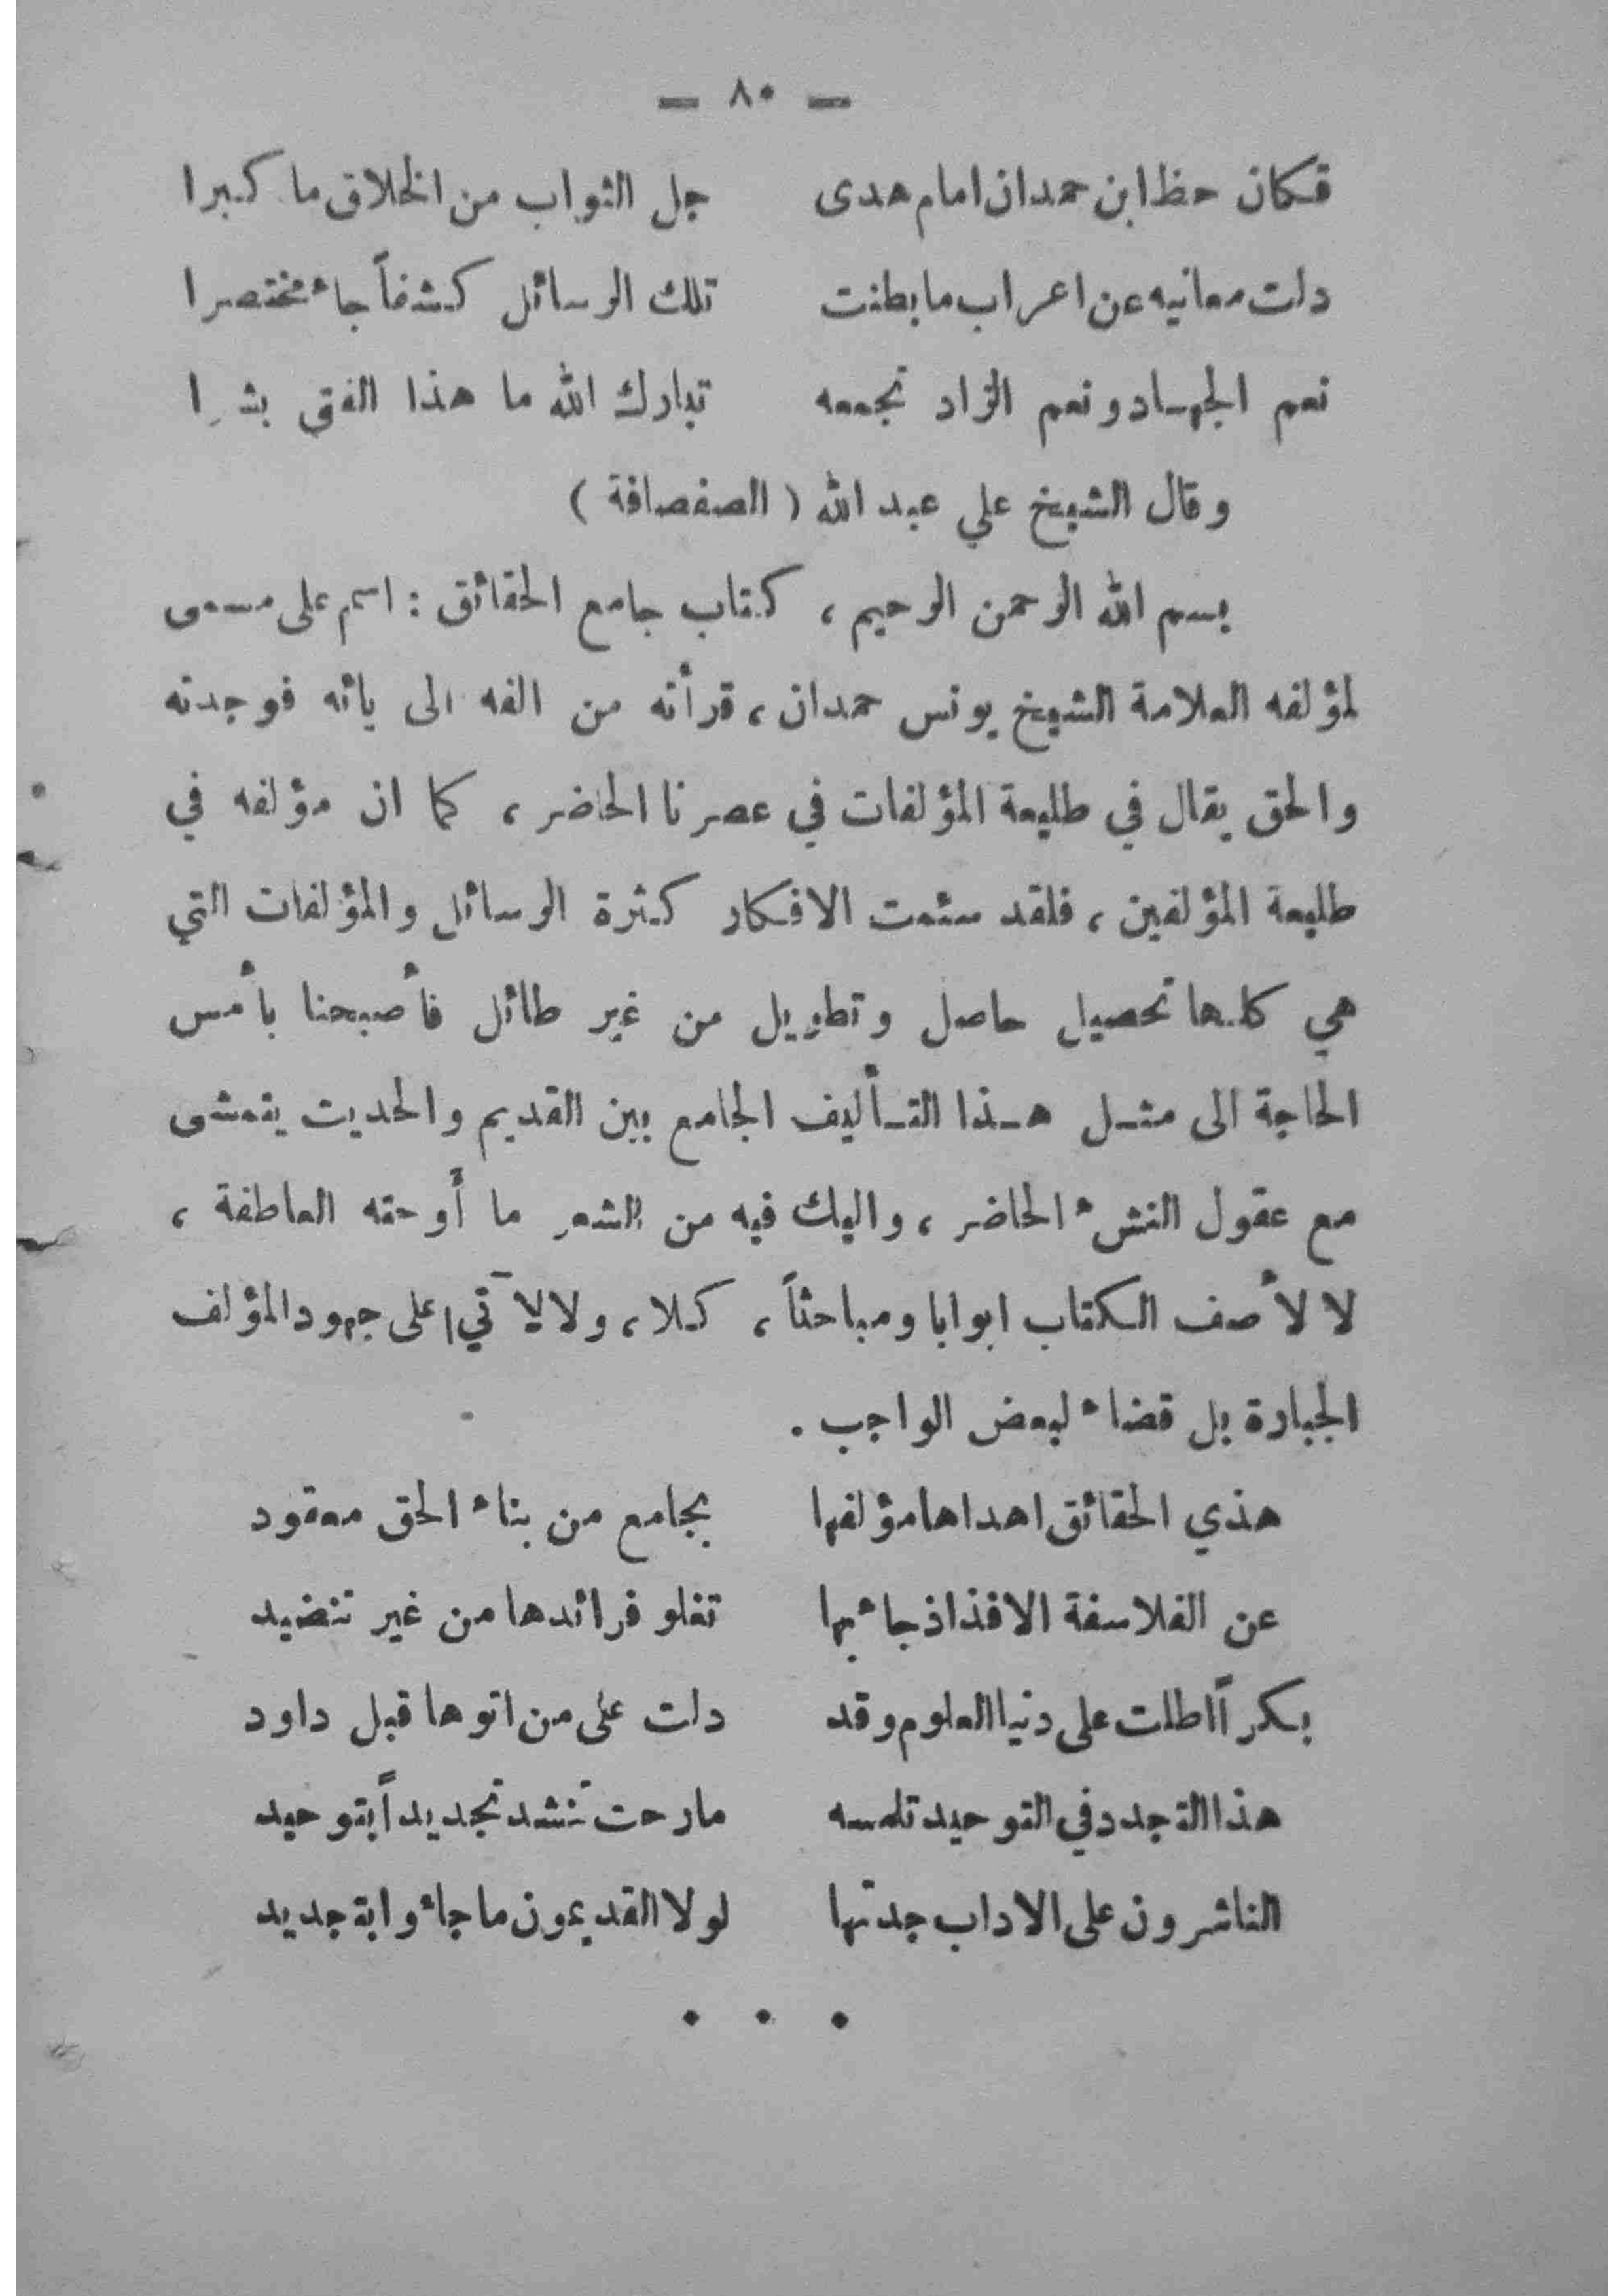 — ٨٠ —
فكان حظ ابن حمدان امام هدى جل الثواب من الخلاق ما كبرا
دلت معانيه عن اعراب ما بطنت تلك الرسائل كشفاً جاء مختصرا
نعم الجهاد ونعم الزاد تجمعه تبارك الله ما هذا الفتى بشرا
وقال الشيخ علي عبد الله ( الصفصافة )
بسم الله الرحمن الرحيم ، كتاب جامع الحقائق : اسم على مسمى
لمؤلفه العلامة الشيخ يونس حمدان ، قرأته من الفه الى يائه فوجدته
والحق يقال في طليعة المؤلفات في عصرنا الحاضر ، كما ان مؤلفه في
طليعة المؤلفين ، فلقد سئمت الافكار كثرة الرسائل والمؤلفات التي
هي كلها تحصيل حاصل وتطويل من غير طائل فأصبحنا بأمس
الحاجة الى مثل هذا التأليف الجامع بين القديم والحديث يتمشى
مع عقول النشء الحاضر ، واليك فيه من الشعر ما أوحته العاطفة ،
لا لأصف الكتاب ابوابا ومباحثاً ، كلا ، ولا لآتي على جهود المؤلف
الجبارة بل قضاء لبعض الواجب .
هذي الحقائق اهداها مؤلفها بجامع من بناء الحق معقود
عن الفلاسفة الافذاذ جاء بها تغلو فرائدها من غير تنضيد
بكراً اطلت على دنيا العلوم وقد دلت على من اتوها قبل داود
هذا التجدد في التوحيد تلمسه ما رحت تنشد تجديداً بتوحيد
الناشرون على الاداب جدتها لولا القديمون ما جاءوا بتجديد
• • •